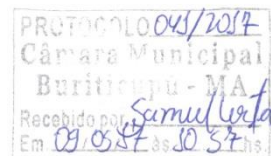 PROTOCOLO 041/2017
Câmara Municipal
Buriticupú - MA
Recebido por
Em 09/05/17 às 10 57 hs.